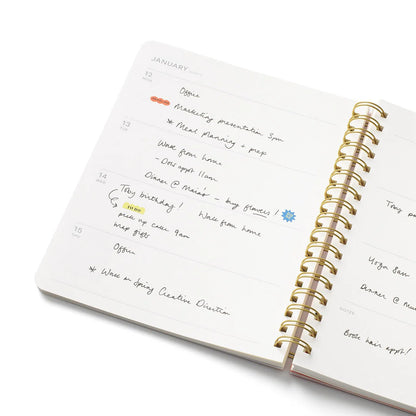 JANUARY
12
MON
Office
Marketing presentation 3pm
* Meal planning + prep
13
TUE
Work from home
- Doc appt 11am
Dinner @ - buy flowers!
14
Toby birthday! Work from home
TO DO
pick up cake 9am
wrap gifts
15
Office
* Work on Spring Creative Direction
Toby
Yoga
Dinner @
NOTES
Book hair appt!